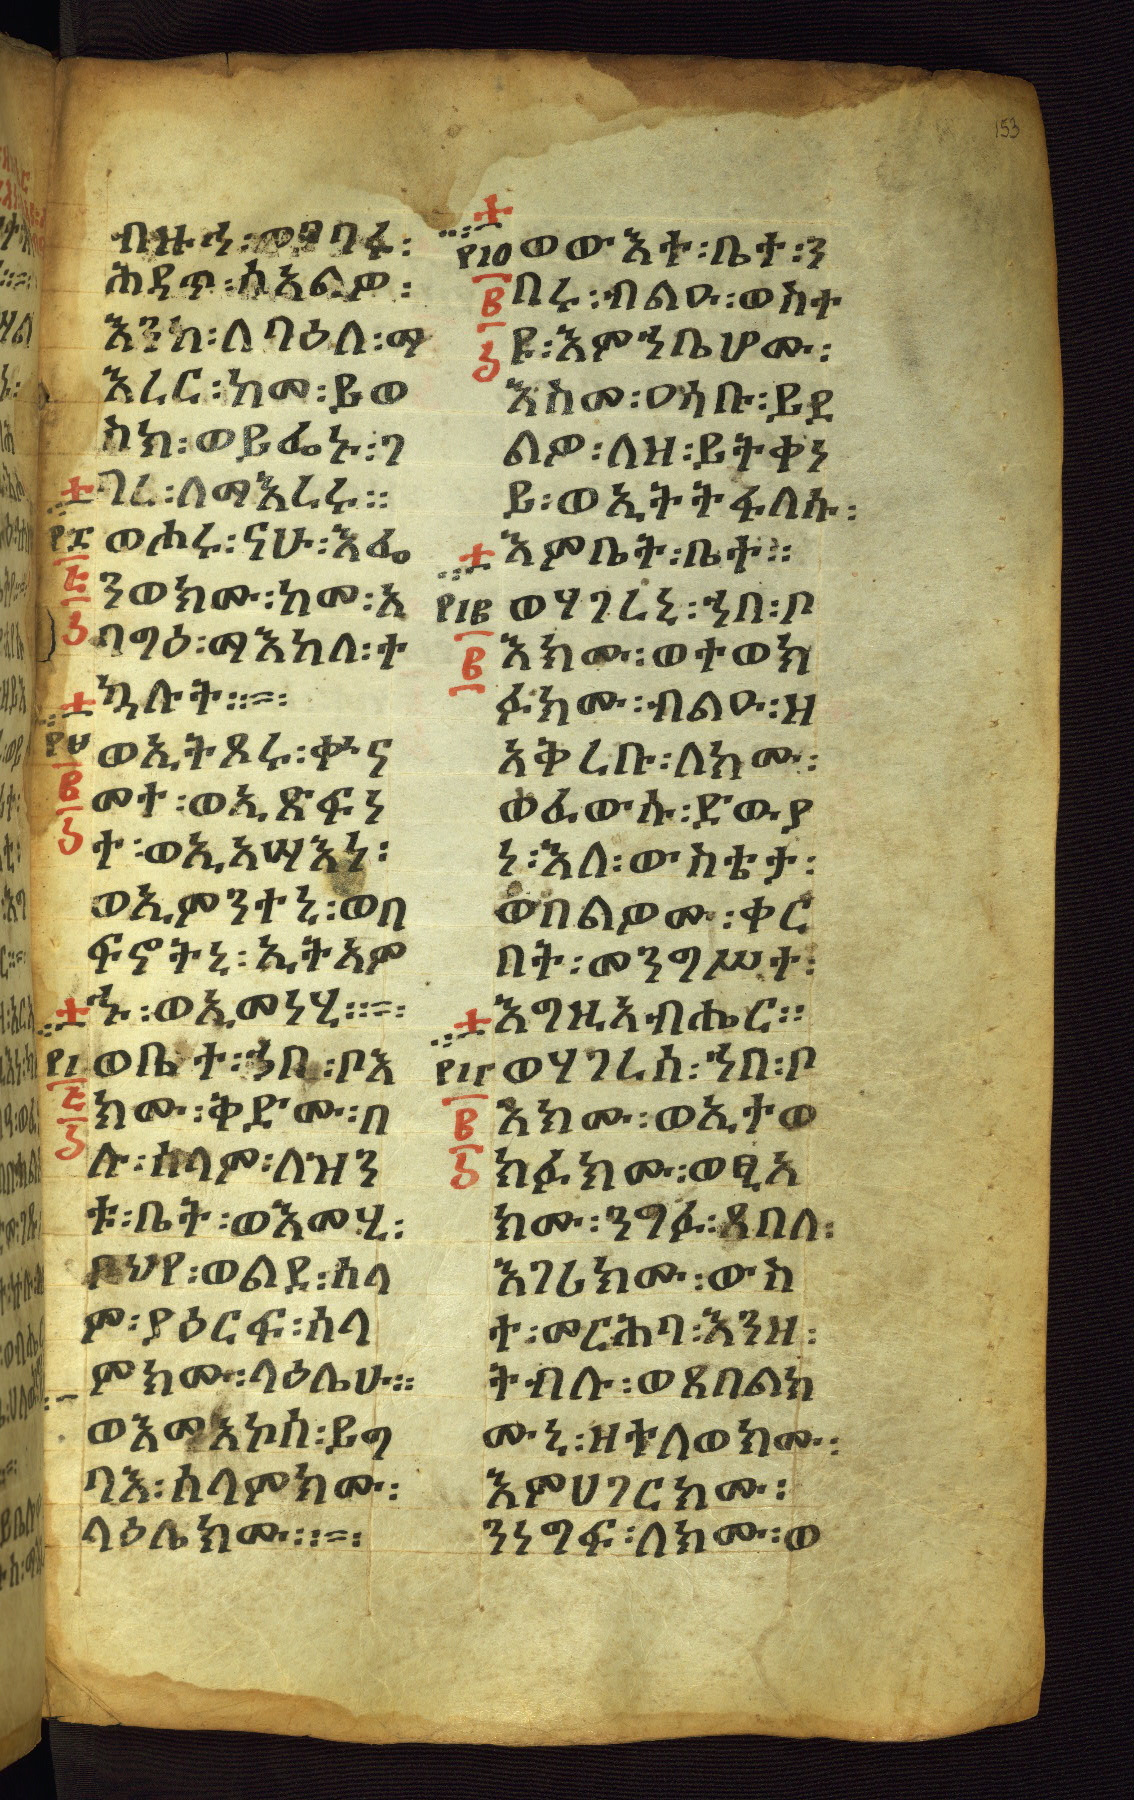 ብዙኅ፡ወገባሩ፡
ሕዳጥ፡ሰአልዎ፡
እንከ፡ለባዕለ፡ማ
እረር፡ከመ፡ይወ
ስክ፡ወይፌኑ፡ገ
ባረ፡ለማእረሩ።
ወሑሩ፡ናሁ፡እፌ
ንወክሙ፡ከመ፡አ
ባግዕ፡ማእከለ፡ተ
ኳሉት።
ወኢትጹሩ፡ቍና
መተ፡ወኢጽፍነ
ተ፡ወኢአሣእነ፡
ወኢምንተኒ፡ወበ
ፍኖትኒ፡ኢትአም
ኁ፡ወኢመነሂ።
ወቤተ፡ኀበ፡ቦእ
ክሙ፡ቅድሙ፡በ
ሉ፡ሰላም፡ለዝን
ቱ፡ቤት፡ወእመሂ፡
ቦህየ፡ወልደ፡ሰላ
ም፡ያዕርፍ፡ሰላ
ምክሙ፡ላዕሌሁ።
ወእመአኮሰ፡ይግ
ባእ፡ሰላምክሙ፡
ላዕሌክሙ።
ወውእተ፡ቤተ፡ን
በሩ፡ብልዑ፡ወስተ
ዩ፡እምኀቤሆሙ፡
እስመ፡ዐሳቡ፡ይደ
ልዎ፡ለዘ፡ይትቀነ
ይ፡ወኢትትፋለሱ፡
እምቤት፡ቤተ።
ወሃገረኒ፡ኀበ፡ቦ
እክሙ፡ወተወክ
ፉክሙ፡ብልዑ፡ዘ
አቅረቡ፡ለክሙ፡
ወፈውሱ፡ድውያ
ነ፡እለ፡ውስቴታ፡
ወበልዎሙ፡ቀር
በት፡መንግሥተ፡
እግዚአብሔር።
ወሃገረሰ፡ኀበ፡ቦ
እክሙ፡ወኢተወ
ክፉክሙ፡ወፂአ
ክሙ፡ንግፉ፡ጸበለ፡
እገሪክሙ፡ውስ
ተ፡መርሕባ፡እንዘ፡
ትብሉ፡ወጸበልክ
ሙኒ፡ዘተለወክሙ፡
እምሀገርክሙ፡
ንነግፍ፡ለክሙ፡ወ
153